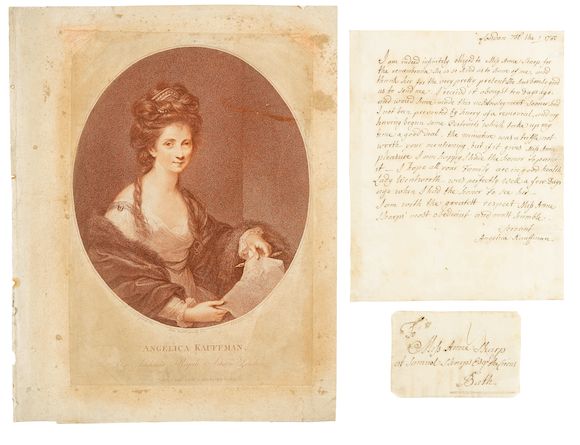 ANGELICA KAUFFMAN.
London
I am indeed infinitely obliged to Miss Anne Sharp for
the remembrance she is so kind as to have of me, and
thank her for the very pretty present she has been so good
as to send me. I received it about ten days ago
and would have made this acknowledgment sooner had
I not been prevented by hurry of a removal, and my
having begun some Portraits which take up my
time a good deal. the miniature was a trifle not
worth your mentioning but if it gives Miss Anne
pleasure I am happy I had the honor to paint
it _ I hope all your Family are in good health
Lady Wentworth was perfectly well a few Days
ago when I had the honor to see her _
I am with the greatest respect Miss Anne
Sharps' most obedient and most humble
Servant
Angelica Kauffman.
To
Miss Anne Sharp
at Samuel Sharps Esq.
Bath.